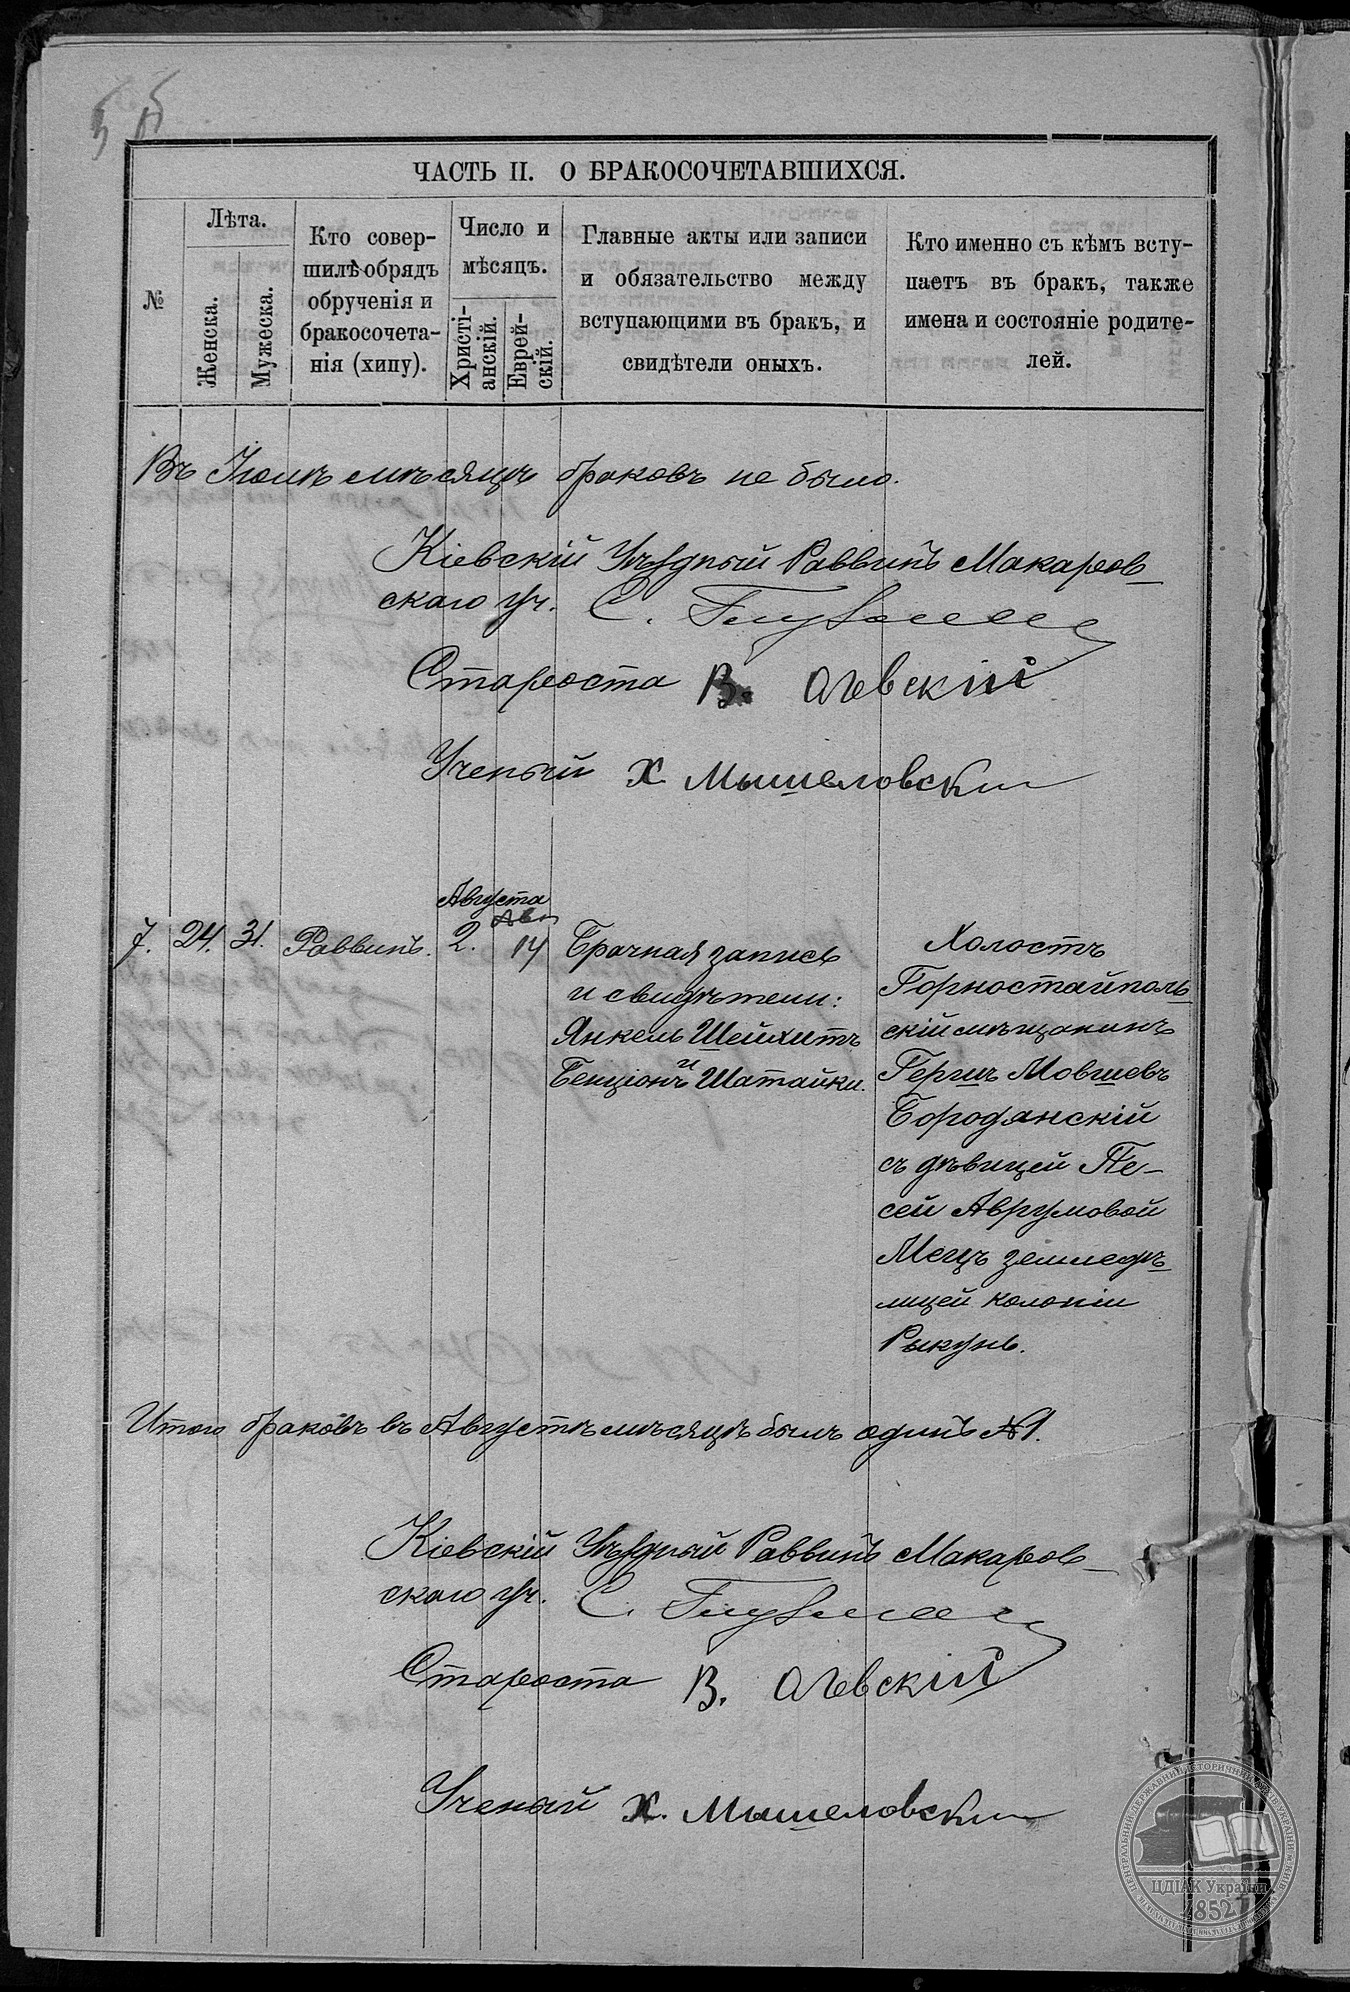 ЧАСТЬ II. О БРАКОСОЧЕТАВШИХСЯ.
№
Лѣта.
Женска.
Мужеска.
Кто совер-
шилъ обрядъ
обрученія и
бракосочета-
нія (хипу).
Число и
мѣсяцъ.
Христі-
анскій.
Еврей-
скій.
Главные акты или записи
и обязательство между
вступающими въ бракъ, и
свидѣтели оныхъ.
Кто именно съ кѣмъ всту-
паетъ въ бракъ, также
имена и состояніе родите-
лей.
Въ Іюлѣ мѣсяцѣ браковъ не было.
Кіевскій Уѣздный Раввинъ Макаров-
скаго уч. С.
Староста В.
Ученый Х Мышеловский
Августа
Ав
7. 24. 31. Раввинъ. 2. 14
Брачная запись
и свидѣтели:
Янкель Шейхитъ
и
Бенціонъ Шатайки.
Холостъ
Горностайполь
скій мѣщанинъ
Гершъ Мовшевъ
Бородянскій
съ дѣвицей Пе-
сей Аврумовой
Мецъ земледѣ
лицей колоніи
Рыкунь.
Итого браковъ въ Августѣ мѣсяцѣ былъ одинъ №1.
Кіевскій Уѣздный Раввинъ Макаров-
скаго уч. С.
Староста В.
Ученый Х. Мышеловский
ЦЕНТРАЛЬНИЙ ДЕРЖАВНИЙ ІСТОРИЧНИЙ АРХІВ УКРАЇНИ М.КИЇВ
ЦДІАК України
1852